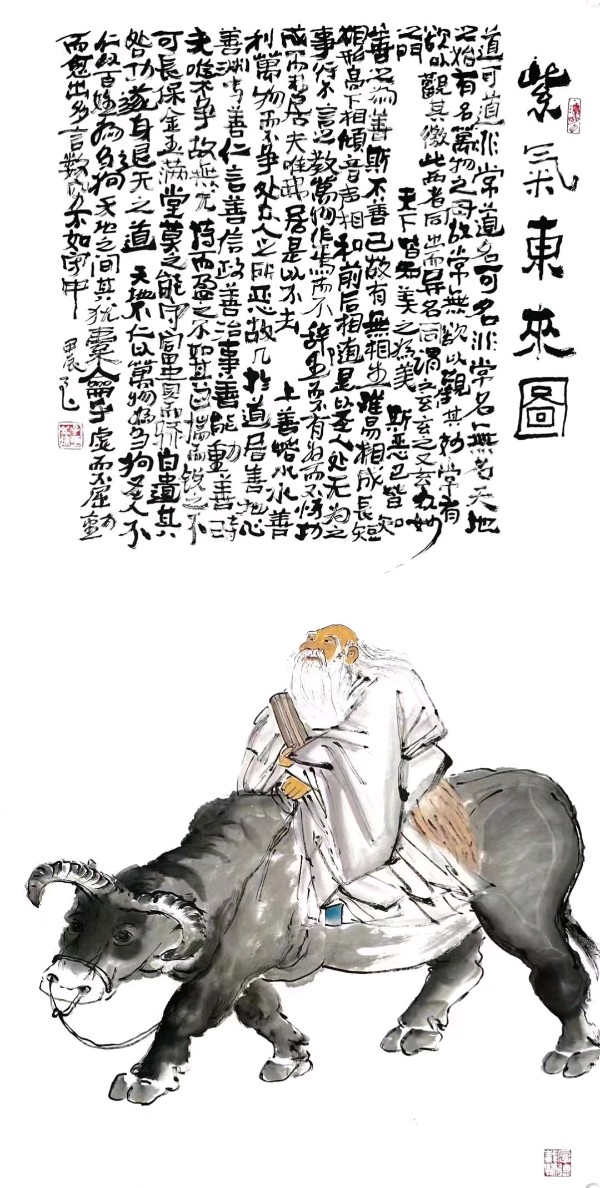 紫氣東來圖
道可道非常道名可名非常名無名天地
之始有名萬物之母故常無欲以觀其妙常有
欲以觀其徼此两者同出而異名同謂之玄玄之又玄众妙
之門 天下皆知美之為美 斯恶已皆知
善之為善斯不善已故有無相生难易相成長短
相形高下相傾音声相和前后相随是以圣人处无为之
事行不言之教萬物作焉而不辞生而不有为而不恃功
成而弗居夫唯弗居是以不去 上善若水水善
利萬物而不争处众人之所恶故几於道居善地心
善渊与善仁言善信政善治事善能動善時
夫唯不争故無尤 持而盈之不如其已揣而锐之不
可長保金玉满堂莫之能守富貴而骄自遺其
咎功遂身退天之道 天地不仁以萬物為刍狗圣人不
仁以百姓為刍狗天地之间其犹橐龠乎虚而不屈动
而愈出多言數穷不如守中 甲辰